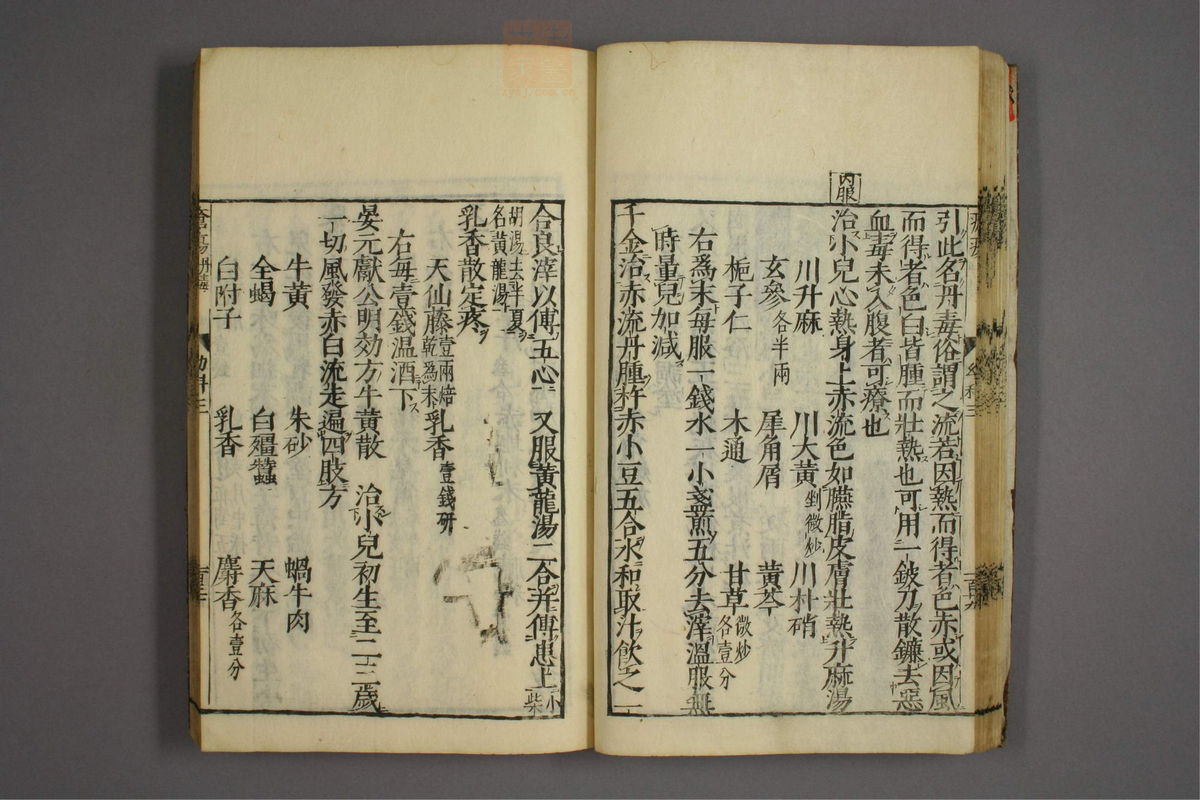 引此名丹毒俗謂之流若因熱而得者色赤或因風
而得者色白皆腫而壯熱也可用一鈹刀散鐮去惡
血毒未入腹者可療也
內服
治小兒心熱身上赤流色如臙脂皮膚壯熱升麻湯
川升麻 川大黃剉微炒 川朴硝
玄參各半兩 犀角屑 黃芩
梔子仁 木通 甘草微炒各壹分
右爲末每服一錢水一小盞煎五分去滓溫服無
時量兒加減
千金治赤流丹腫杵赤小豆五合水和取汁飲之一
合良滓以傅五心 又服黃龍湯二合并傅患上小柴
胡湯去半夏名黃龍湯
乳香散定疼
天仙藤壹兩焙乾爲末 乳香壹錢研
右每壹錢温酒下
晏元獻公明効方牛黃散 治小兒初生至二三歲
一切風發赤白流走遍四肢方
牛黃 朱砂 蝸牛肉
全蝎 白殭蠶 天麻
白附子 乳香 麝香各壹分